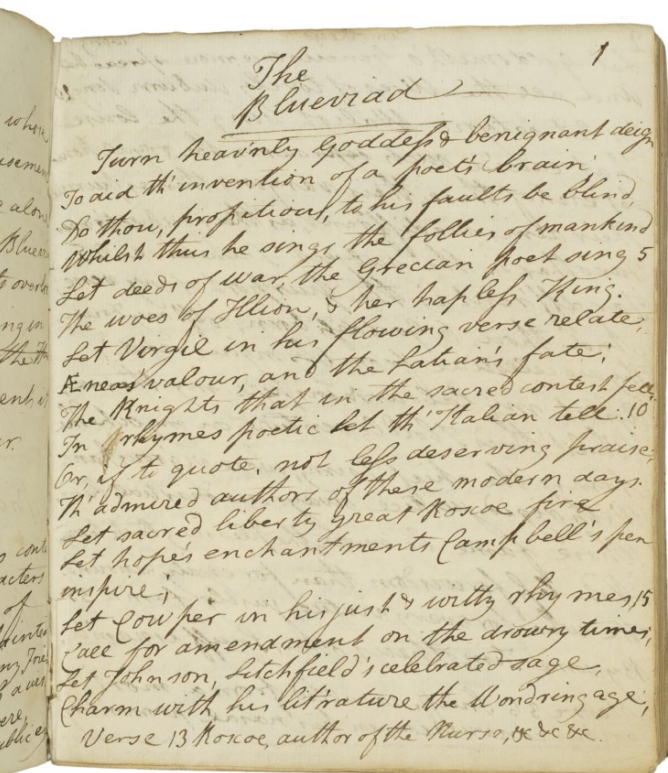 1
The
Blueviad
Turn heav'nly Goddess & benignant deign
To aid th' invention of a poet's brain;
Do thou, propitious, to his faults be blind,
Whilst thus he sings the follies of mankind
Let deeds of war, the Grecian poet sing 5
The woes of Illion, & her hapless King.
Let Vergil in his flowing verse relate,
Æneas valour, and the Latian's fate;
The Knights that in the sacred contest fell.
In rhymes poetic let th' Italian tell. 10
Or, if to quote, not less deserving praise,
Th' admired authors of these modern days.
Let sacred liberty great Roscoe fire
Let hope's enchantments Campbell's pen
inspire;
Let Cowper in his just & witty rhymes, 15
Call for amendment on the drowsy times;
Let Johnson, Litchfield's celebrated sage,
Charm with his lit'rature the Wondring age;
Verse 13 Roscoe, author of the Nurse, &c &c &c.